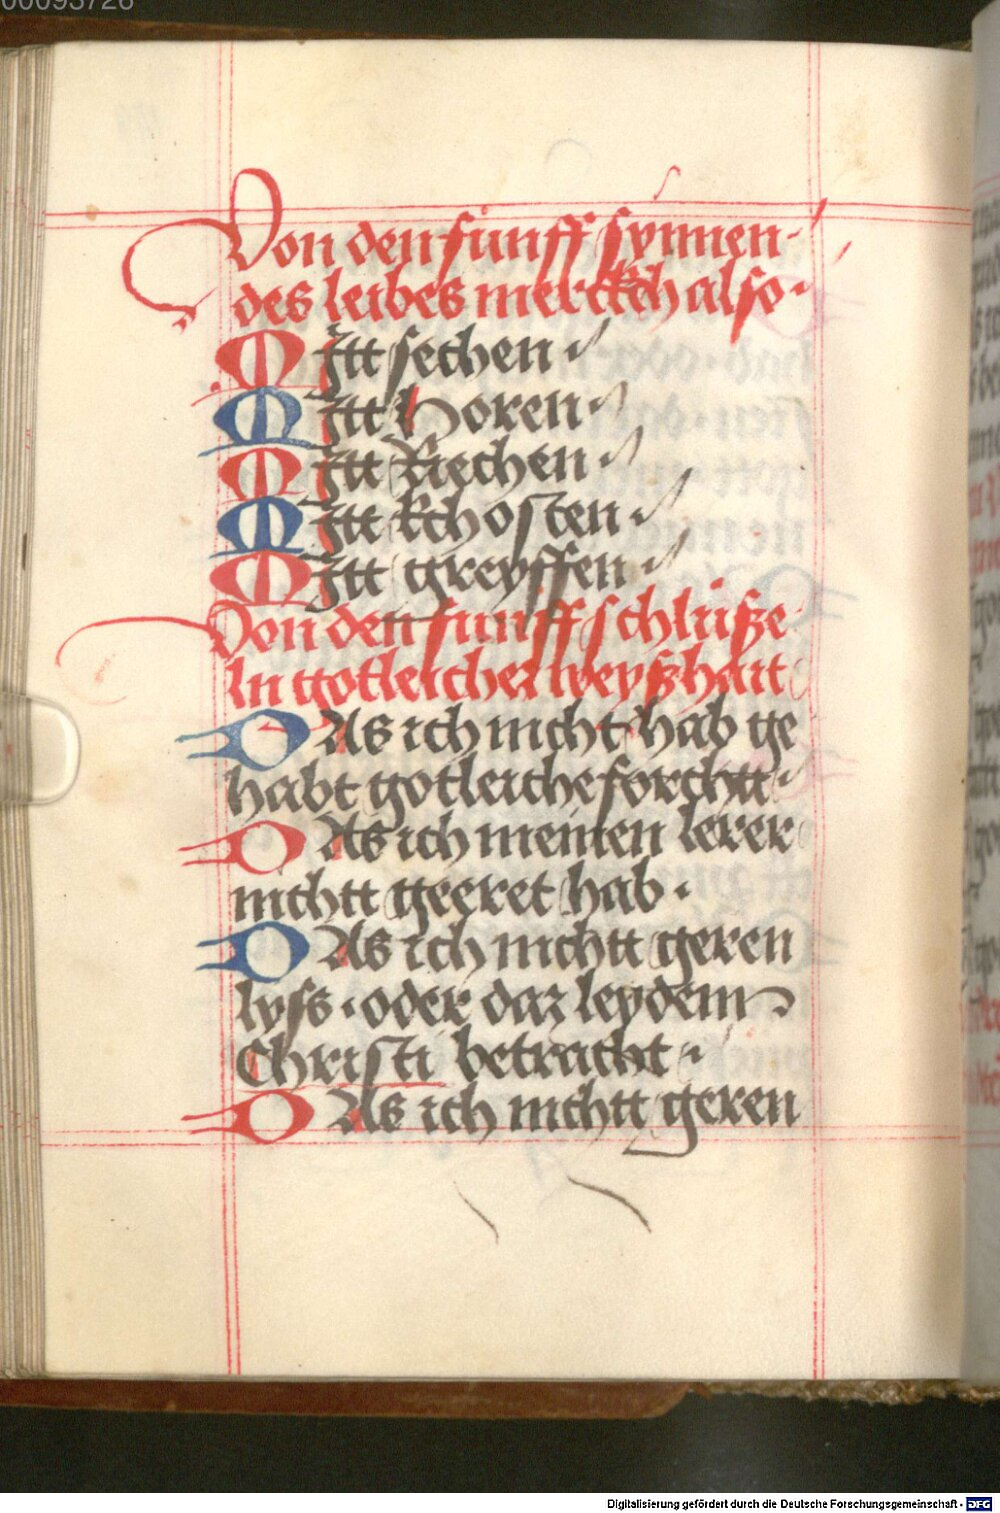 00093726
Von den funff synnen·
des leibes merckch also·
MItt sechen
MItt Horen
MItt Riechen
MItt kchosten
MItt greyffen
Von den funff schlusse
In gotleicher weyszhait
DAs ich nicht hab ge
habt gotleiche forchtt·
DAs ich meinen lerer
nichtt geeret hab·
DAs ich nichtt geren
lyss· oder daz leydenn
Christi betracht·
DAs ich nichtt geren
Digitalisierung gefördert durch die Deutsche Forschungsgemeinschaft - DFG